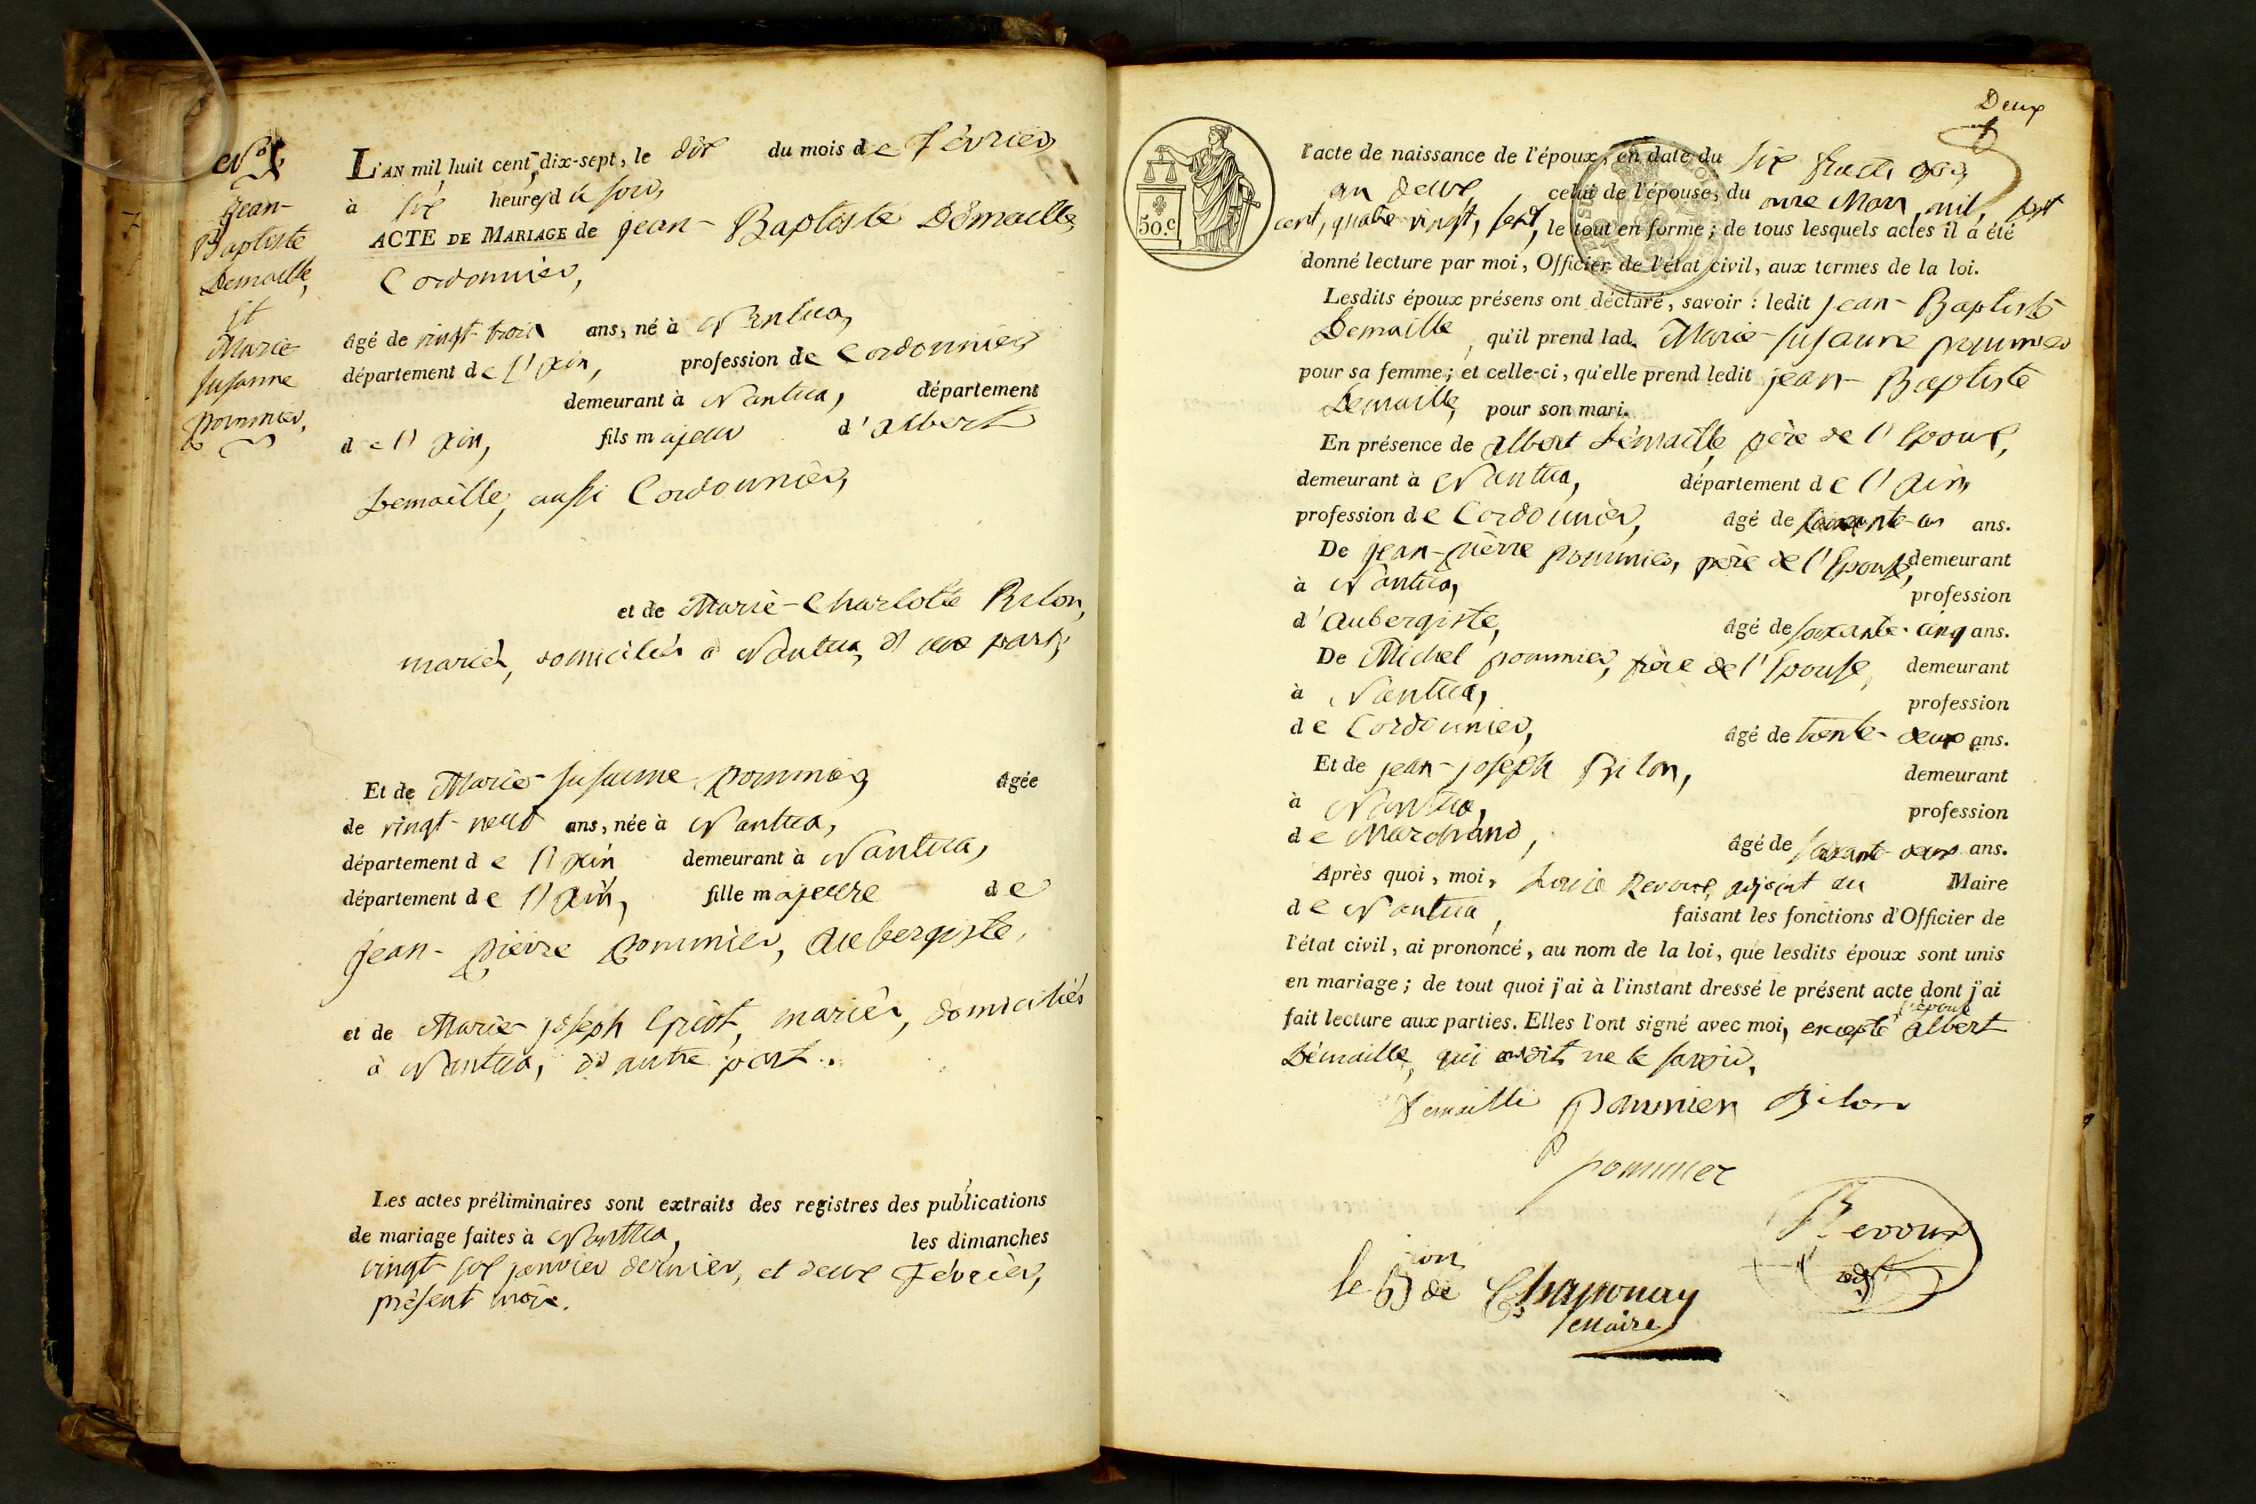 N°
Jean-
Baptiste
Demaille,
et
Marie
Susanne
pommier,
L'AN mil huit cent dix-sept, le dix du mois de Février
à six heures du soir,
ACTE DE MARIAGE de jean-Baptiste Démaille,
Cordonnier,
âgé de vingt-trois ans, né à Nantua,
département de l'Ain, profession de Cordonnier
demeurant à Nantua, département
de l'Ain, fils majeur d'albert
Demaille, aussi Cordonnier,
et de Marie-Charlotte Bilon,
mariés, domiciliés à Nantua, d'une part,
Et de Marie-Susanne pommier, âgée
de vingt-neuf ans, née à Nantua,
département de l'Ain demeurant à Nantua,
département de l'Ain, fille majeure de
jean-pierre pommier, Aubergiste,
et de Marie-joseph, mariés, domiciliés
à Nantua, d'autre part.
Les actes préliminaires sont extraits des registres des publications
de mariage faites à Nantua, les dimanches
vingt-six janvier dernier, et deux Février,
présent mois.
Deux
50.c
l'acte de naissance de l'époux, en date du six
an deux, celui de l'épouse, du onze Mars, mil, sept
cent, quatre vingt, sept, le tout en forme; de tous lesquels actes il a été
donné lecture par moi, Officier de l'état civil, aux termes de la loi.
Lesdits époux présens ont déclaré, savoir : ledit jean-Baptiste
Demaille, qu'il prend lad. Marie-susanne pommier
pour sa femme; et celle-ci, qu'elle prend ledit jean-Baptiste
Demaille, pour son mari.
En présence de albert Démaille, père de l'époux,
demeurant à Nantua, département de l'Ain,
profession de Cordonnier, âgé de ans.
De jean-pierre pommier, père de l'Epouse, demeurant
à Nantua, profession
d'Aubergiste, âgé de soixante-cinq ans.
De Michel pommier, frère de l'Epouse, demeurant
à Nantua, profession
de Cordonnier, âgé de trente-deux ans.
Et de jean-joseph Bilon, demeurant
à Nantua, profession
de Marchand, âgé de soixante-deux ans.
Après quoi, moi, Louis Revoux, adjoint au Maire
de Nantua, faisant les fonctions d'Officier de
l'état civil, ai prononcé, au nom de la loi, que lesdits époux sont unis
en mariage; de tout quoi j'ai à l'instant dressé le présent acte dont j'ai
l'épouse
fait lecture aux parties. Elles l'ont signé avec moi, excepté albert
Démaille, qui ont dit ne le savoir.
Demaille Pommier Bilon
pommier
Revoux
adjt
le Bon de Chaponay
maire